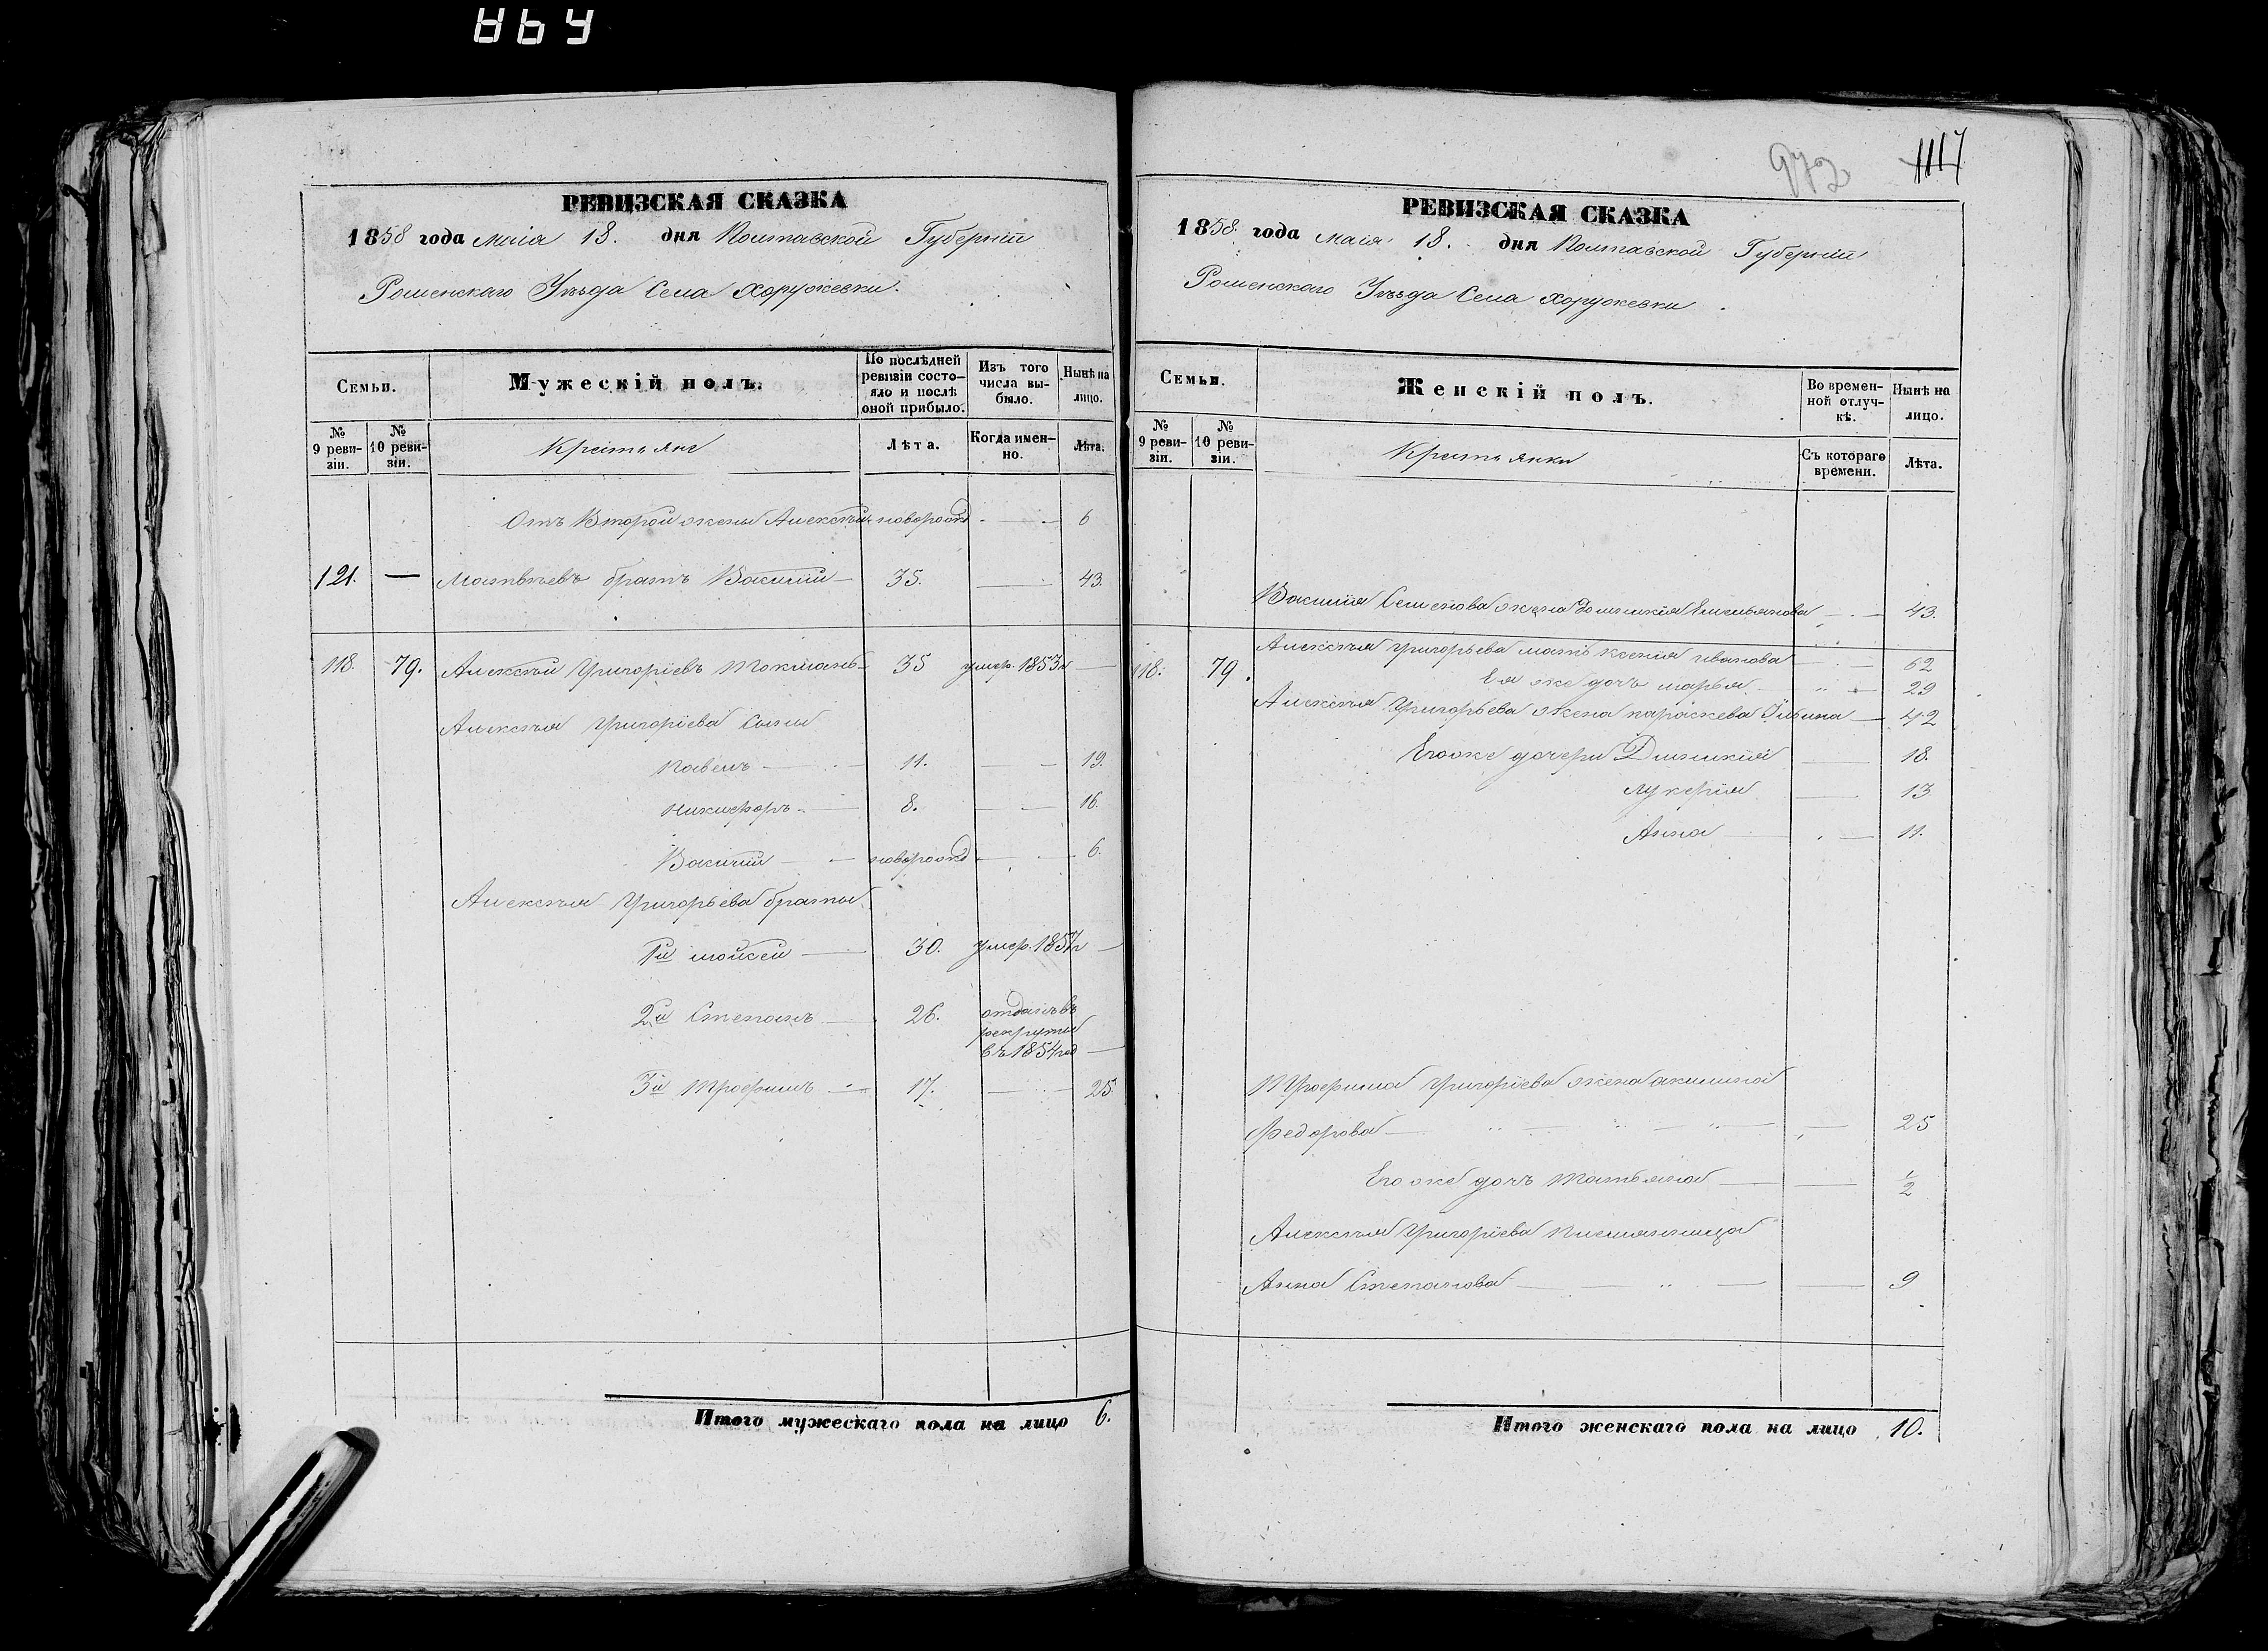 РЕВИЗСКАЯ СКАЗКА
1858 года маія 18. дня Полтавской Губерніи
Роменскаго Уѣзда Села Хоружевки.
Семьи. Мужескій полъ. По послѣдней ревизіи состояло и послѣ оной прибыло. Изъ того числа выбыло. Нынѣ на лицо.
№ 9 ревизіи. № 10 ревизіи. Крестьяне Лѣта. Когда именно. Лѣта.
Отъ Второй жены Алексѣй новорожд 6
121. — Матвѣевъ братъ Василій 35. 43.
118. 79. Алексѣй Григоріевъ 35 умер. 1853 г
Алексѣя Григоріева Сыны
Павелъ 11. 19.
Никифоръ 8. 16.
Василій новорожд 6.
Алексѣя Григорьева братья
1й Мойсей 30. умер. 1857 г
2й Степанъ 26. отданъ въ
рекруты
въ 1854 год
3й Трофимъ 17. 25.
Итого мужескаго пола на лицо 6.
972 1117
РЕВИЗСКАЯ СКАЗКА
1858 года маія 18. дня Полтавской Губерніи
Роменскаго Уѣзда Села Хоружевки.
Семьи. Женскій полъ. Во временной отлучкѣ. Нынѣ на лицо.
№ 9 ревизіи. № 10 ревизіи. Крестьянки Съ котораго времени. Лѣта.
Василія Семенова жена Домникія Емельянова 43.
118. 79. Алексѣя Григорьева мать Ксенія Иванова 62
Ея же дочь Марья 29
Алексѣя Григорьева жена Параскева Ильина 42
Егоже дочери Домникія 18.
Лукерія 13
Анна 11.
Трофима Григоріева жена Акилина
Федорова 25
Его же дочь Татьяна 1/2
Алексѣя Григоріева племянница
Анна Степанова 9
Итого женскаго пола на лицо 10.